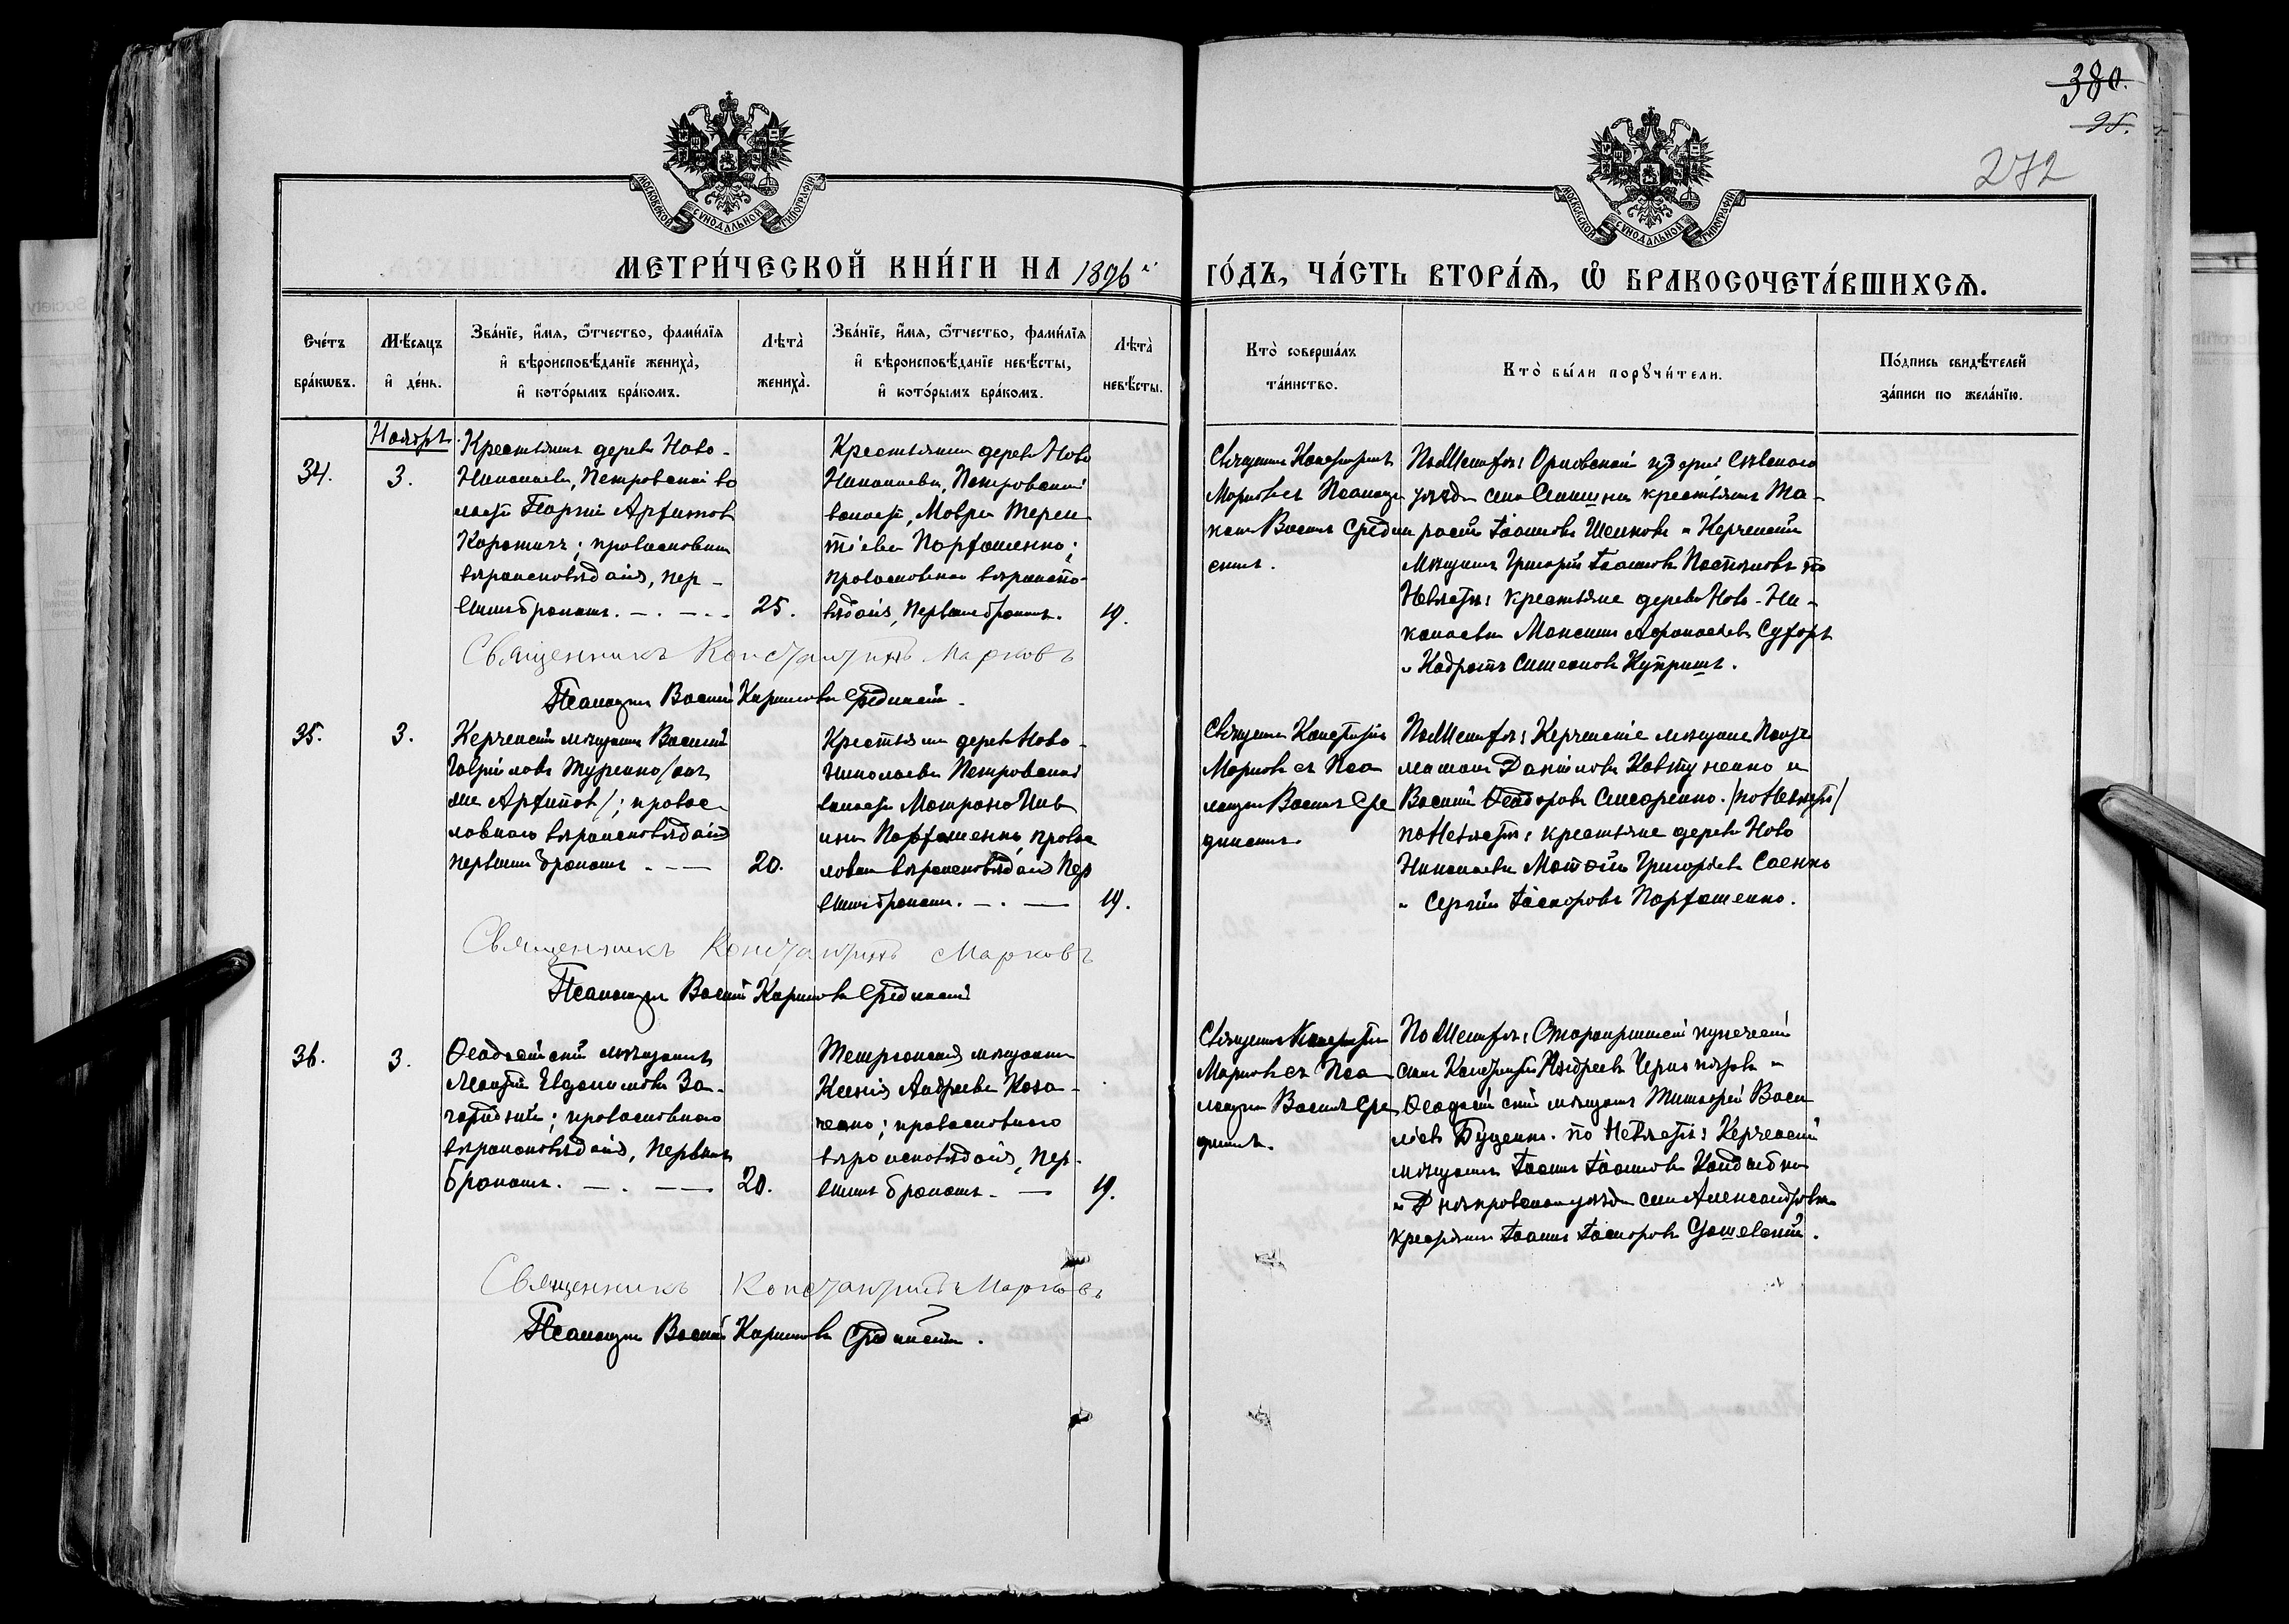 380.
95.
272
МОСКОВСКОЙ СѴНОДАЛЬНОЙ ТИПОГРАФІИ
МОСКОВСКОЙ СѴНОДАЛЬНОЙ ТИПОГРАФІИ
МЕТРИ́ЧЕСКОЙ КНИ́ГИ НА 1896й ГО́ДЪ, ЧА́СТЬ ВТОРА́Я, Ѿ БРАКОСОЧЕТА́ВШИХСЯ.
Сче́тъ бра́кѡвъ.
Мѣ́сяцъ и҆ де́нь.
Зва́нїе, и҆́мя, ѻ҆́тчество, фами́лїя
и҆ вѣроисповѣ́данїе жениха̀,
и҆ кото́рымъ бра́комъ.
Лѣ́та̀ жениха̀.
Зва́нїе, и҆́мя, ѻ҆́тчество, фами́лїя
и҆ вѣроисповѣ́данїе невѣ́сты,
и҆ кото́рымъ бра́комъ.
Лѣ́та̀ невѣ́сты.
Кто̀ соверша́лъ
та́инство.
Кто̀ бы́ли порꙋчи́тели.
По́дпись свидѣ́телей
за́писи по жела́нїю.
Ноябрь.
34.
3.
Крестьянинъ дерев. Ново-
Николаевки, Петровской во
лости Георгій Архиповъ
православнаго
вѣроисповѣданія, пер-
вымъ бракомъ. — . — . —
25.
Крестьянка дерев. Ново
Николаевки, Петровской
волости, Мавра Терен
тіева Пархоменко;
православнаго вѣроиспо-
вѣданія, первымъ бракомъ.
19.
Священникъ Константинъ
Марковъ съ Псаломщи
комъ Василіемъ Средин
скимъ.
По Женихѣ: Орловской губерніи Сѣвскаго
уѣзда села крестьянинъ Та-
расій Іоанновъ и Керченскій
мѣщанинъ Григорій Іоанновъ по
Невѣстѣ: крестьяне дерев. Ново-Ни-
колаевки Максимъ Аѳанасьевъ
и Кодратъ Симеоновъ Купринъ.
Священникъ Константинъ Марковъ
Псаломщикъ Василій Кириловъ Срединскій.
35.
3.
Керченскій мѣщанинъ Василій
Гавріиловъ Туренко /онъ
же Архиповъ/; правос-
лавнаго вѣроисповѣданія
первымъ бракомъ. — —
20.
Крестьянка дерев. Ново-
Николаевки Петровской
волости Матрона
Пархоменко, правос
лавнаго вѣроисповѣданія пер
вымъ бракомъ. — . —
19.
Священникъ Константинъ
Марковъ съ Пса
ломщикомъ Василіемъ Сре
динскимъ.
По Женихѣ: Керченскіе мѣщане
Даніиловъ Ковтуненко и
Василій Ѳеодоровъ Слисаренко. /по Невѣстѣ/
по Невѣстѣ: крестьяне дерев. Ново
Николаевки Матѳій Григорьевъ Саенко
и Сергій Іосифовъ Пархоменко.
Священникъ Константинъ Марковъ
Псаломщикъ Василій Кириловъ Срединскій
36.
3.
Ѳеодосійскій мѣщанинъ
Леонтій Евдокимовъ За-
городній; православнаго
вѣроисповѣданія, первымъ
бракомъ. — . — —
20.
мѣщанка
Ксенія Андреева Коза-
ченко; православнаго
вѣроисповѣданія, пер-
вымъ бракомъ. —
19.
Священникъ Константинъ
Марковъ съ Пса
ломщикомъ Василіемъ Сре
динскимъ.
По Женихѣ: Старокрымскій купеческій
сынъ Константинъ Андреевъ и
Ѳеодосійскій мѣщанинъ Тимоѳей Васи
ліевъ Буценко. по Невѣстѣ: Керченскій
мѣщанинъ Іоаннъ Іоанновъ
и Днѣпровскаго уѣзда села Александровки
крестьянинъ Іоаннъ Іосифовъ
Священникъ Константинъ Марковъ
Псаломщикъ Василій Кириловъ Срединскій.